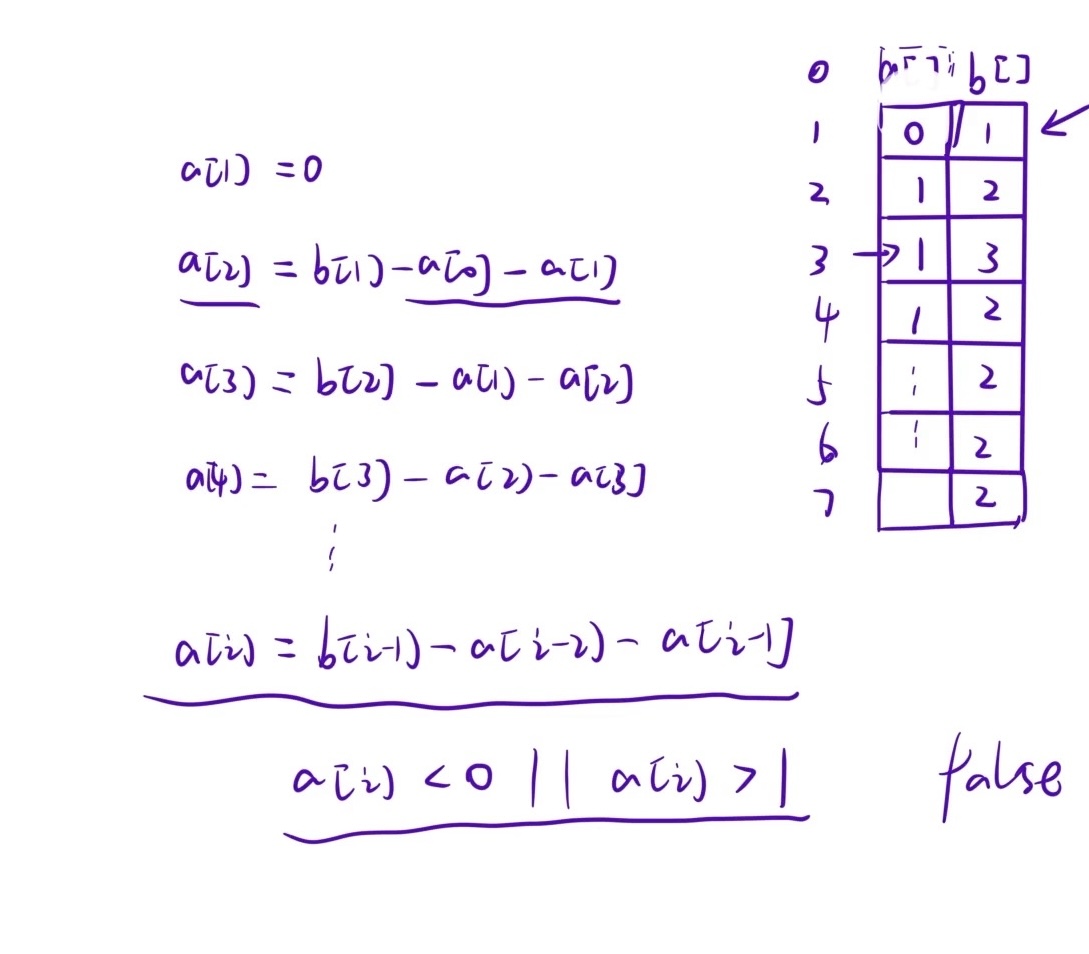 0 a[] b[]
1 0 1
a[1] = 0
2 1 2
a[2] = b[1] - a[0] - a[1]
3 → 1 3
4 1 2
a[3] = b[2] - a[1] - a[2]
5 ⋮ 2
6 ⋮ 2
a[4] = b[3] - a[2] - a[3]
7 2
⋮
a[i] = b[i-1] - a[i-2] - a[i-1]
a[i] < 0 || a[i] > 1 false